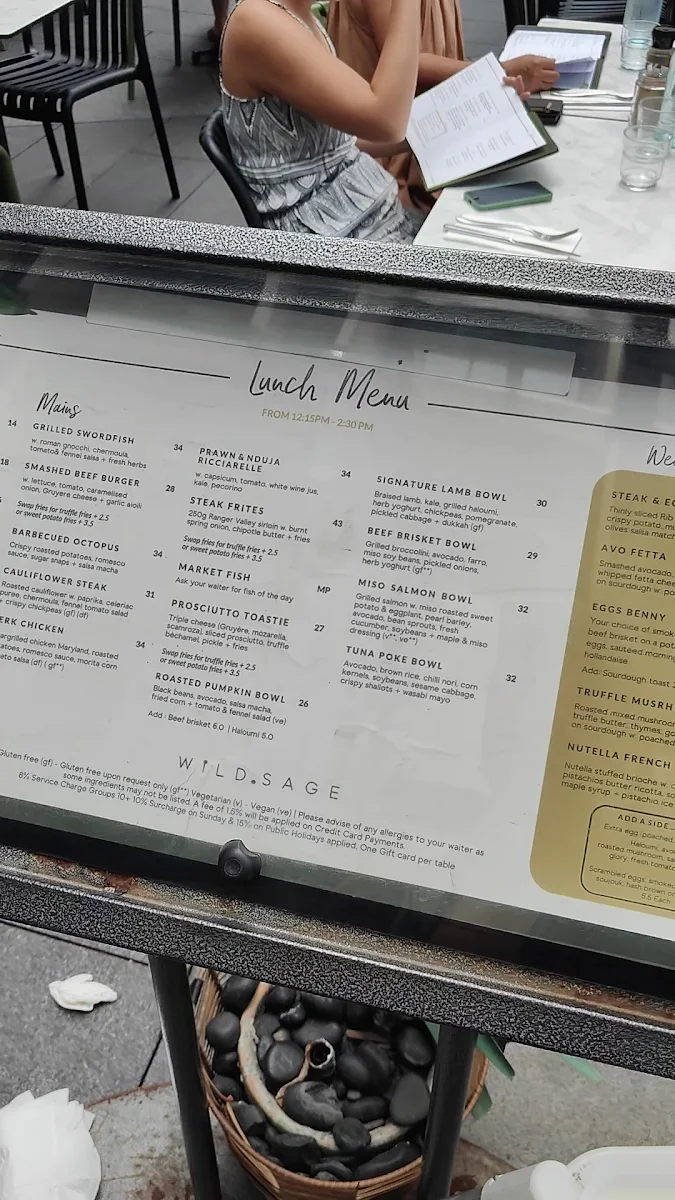 Lunch Menu
FROM 12:15PM - 2:30 PM
Mains
14
18
GRILLED SWORDFISH 34
w. roman gnocchi, chermoula,
tomato& fennel salsa + fresh herbs
SMASHED BEEF BURGER 28
w. lettuce, tomato, caramelised
onion, Gruyere cheese + garlic aioli
Swap fries for truffle fries + 2.5
or sweet potato fries + 3.5
BARBECUED OCTOPUS 34
Crispy roasted potatoes, romesco
sauce, sugar snaps + salsa macha
CAULIFLOWER STEAK 31
Roasted cauliflower w. paprika, celeriac
puree, chermoula, fennel tomato salad
+ crispy chickpeas (gf) (df)
ERK CHICKEN 34
argrilled chicken Maryland, roasted
atoes, romesco sauce, morita corn
ato salsa (df) ( gf**)
PRAWN & NDUJA
RICCIARELLE 34
w. capsicum, tomato, white wine jus,
kale, pecorino
STEAK FRITES 43
250g Ranger Valley sirloin w. burnt
spring onion, chipotle butter + fries
Swap fries for truffle fries + 2.5
or sweet potato fries + 3.5
MARKET FISH MP
Ask your waiter for fish of the day
PROSCIUTTO TOASTIE 27
Triple cheese (Gruyère, mozarella,
scamroza), sliced prosciutto, truffle
béchamel, pickle + fries
Swap fries for truffle fries + 2.5
or sweet potato fries + 3.5
ROASTED PUMPKIN BOWL 26
Black beans, avocado, salsa macha,
fried corn + tomato & fennel salad (ve)
Add : Beef brisket 6.0 | Haloumi 5.0
SIGNATURE LAMB BOWL 30
Braised lamb, kale, grilled haloumi,
herb yoghurt, chickpeas, pomegranate,
pickled cabbage + dukkah (gf)
BEEF BRISKET BOWL 29
Grilled broccolini, avocado, farro,
miso soy beans, pickled onions,
herb yoghurt (gf**)
MISO SALMON BOWL 32
Grilled salmon w. miso roasted sweet
potato & eggplant, pearl barley,
avocado, bean sprouts, fresh
cucumber, soybeans + maple & miso
dressing (v**, ve**)
TUNA POKE BOWL 32
Avocado, brown rice, chilli nori, corn
kernels, soybeans, sesame cabbage,
crispy shallots + wasabi mayo
We
STEAK & E
Thinly sliced Rib
crispy potato, mu
olives salsa match
AVO FETTA
Smashed avocado,
whipped fetta chee
on sourdough w. po
EGGS BENNY
Your choice of smok
beef brisket on a pota
eggs, sauteed morning
hollandaise
Add: Sourdough toast
TRUFFLE MUSRH
Roasted mixed mushroom
truffle butter, thymes, go
on sourdough w. poached
NUTELLA FRENCH
Nutella stuffed brioche w.
pistachios butter ricotta, s
maple syrup + pistachio ice
ADD A SIDE
Extra egg (poached,
Haloumi, avo
roasted mushroom, sa
glory, fresh tomat
Scrambled eggs, smoked
soujouk, hash brown o
5.5 Each
WILD.SAGE
Gluten free (gf) - Gluten free upon request only (gf**) Vegetarian (v) - Vegan (ve) | Please advise of any allergies to your waiter as
some ingredients may not be listed. A fee of 1.5% will be applied on Credit Card Payments.
8% Service Charge Groups 10+ 10% Surcharge on Sunday & 15% on Public Holidays applied. One Gift card per table